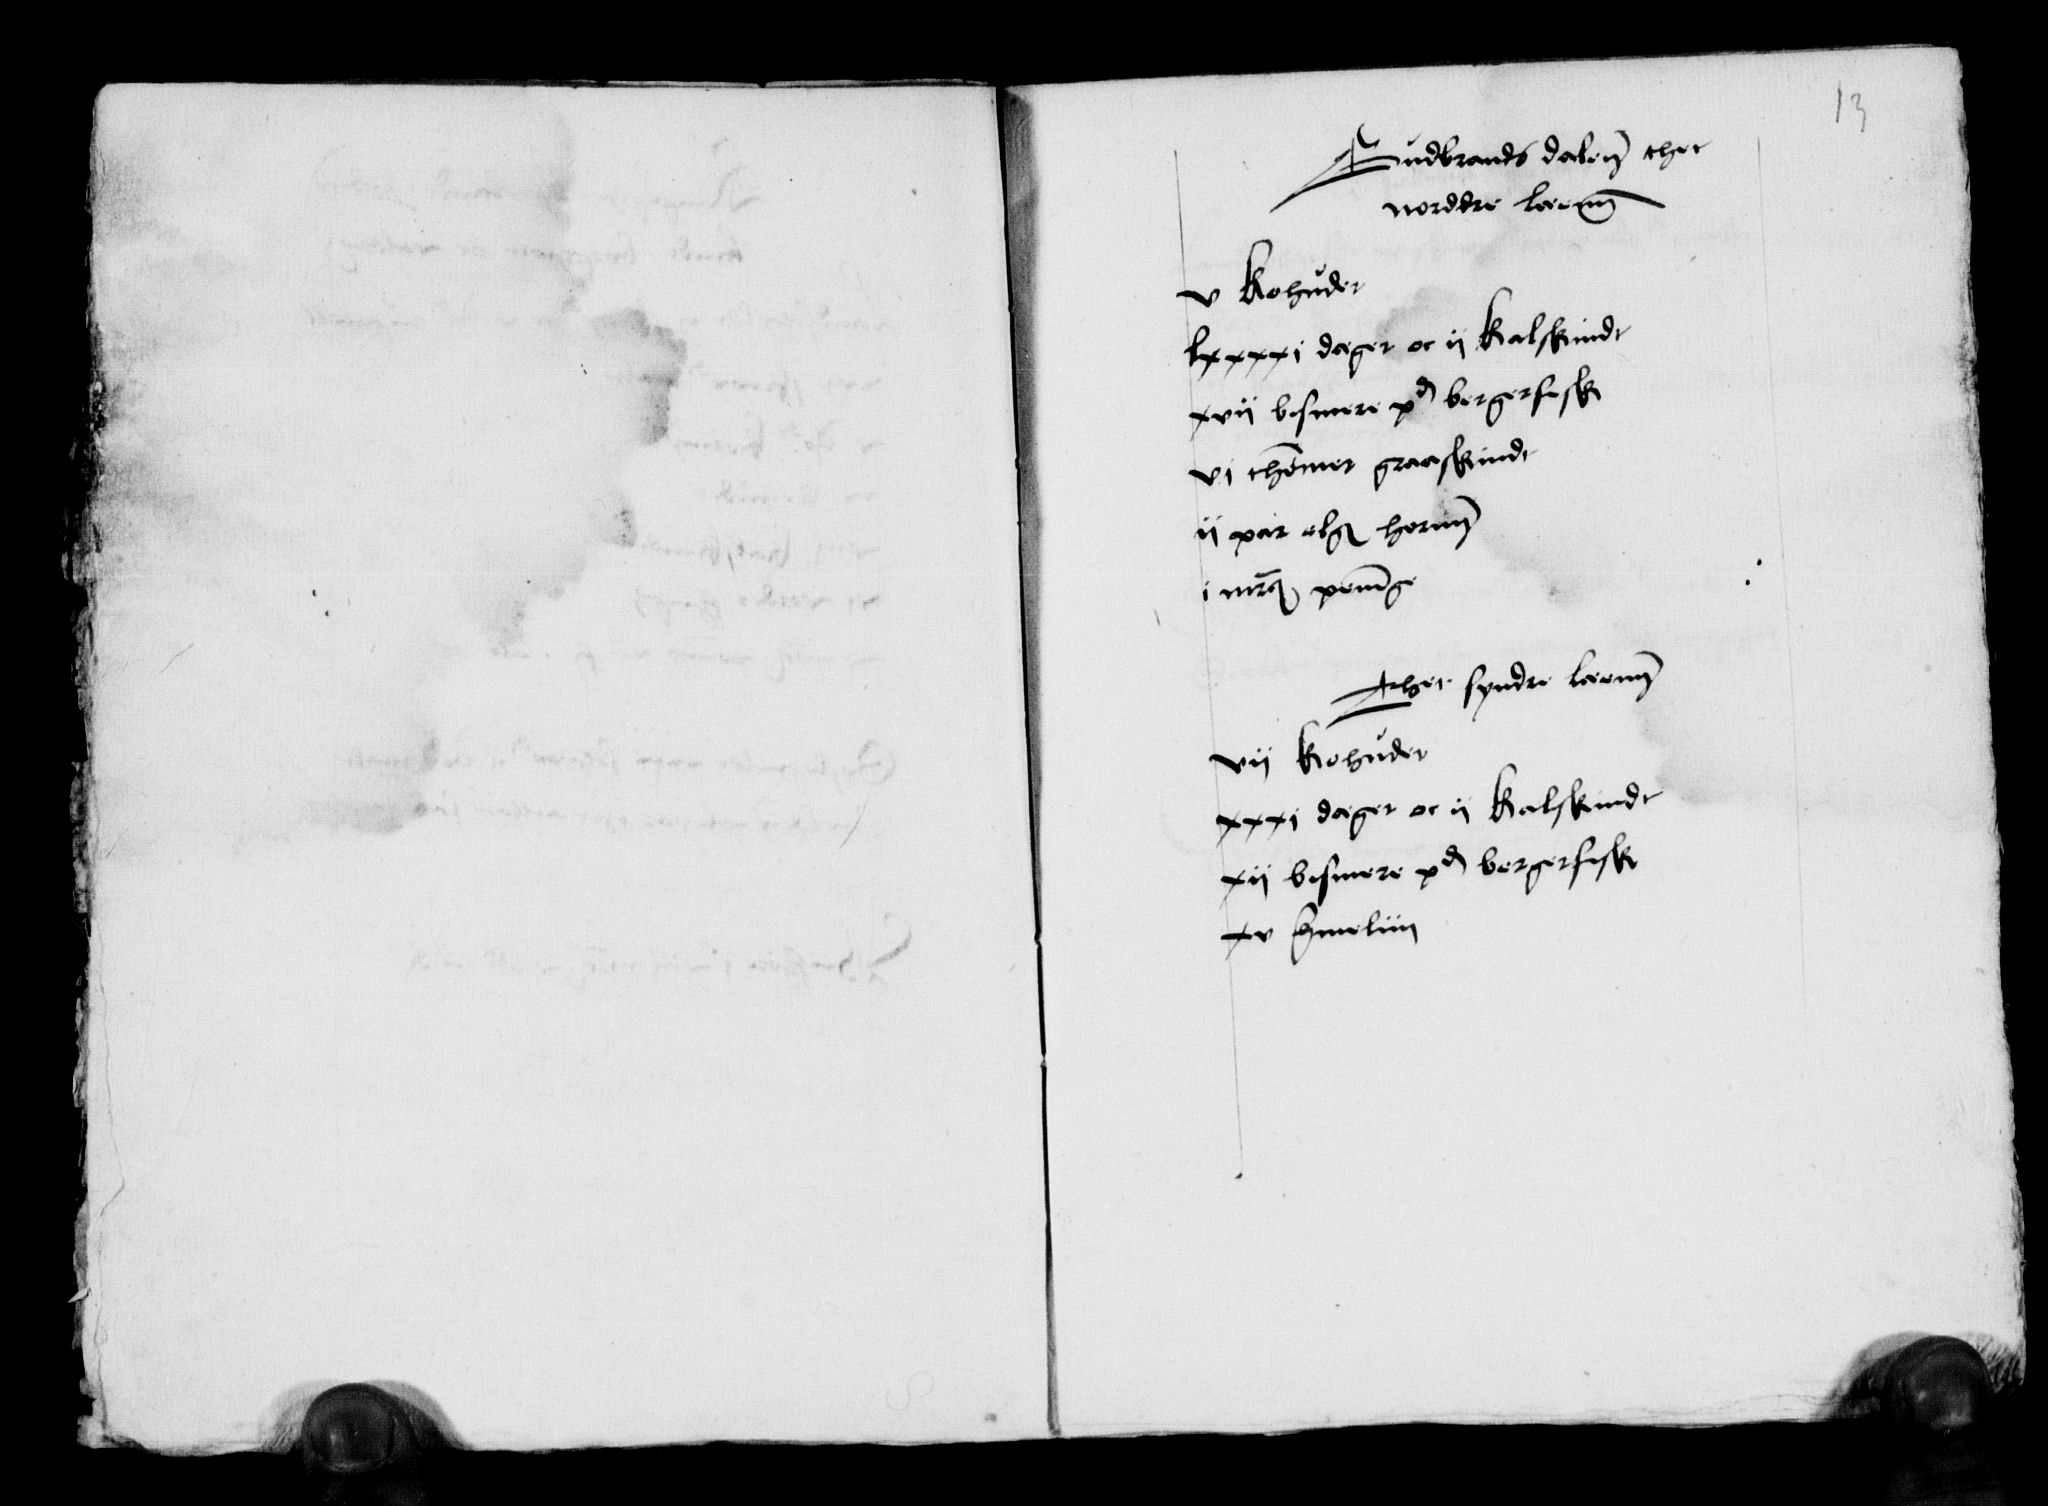 13
Gudbrands dalenn thet
norddre leenn
v kohuder
lxxxxi deger oc ij kalskindt
xvij bismere pd bergerfisk
vi themer graaskindt
ij par elgs hornn
i mrck peninge
Thet syndre leenn
vij kohuder
xxxi deger oc ij kalskindt
xij bismere pd bergerfisk
xv